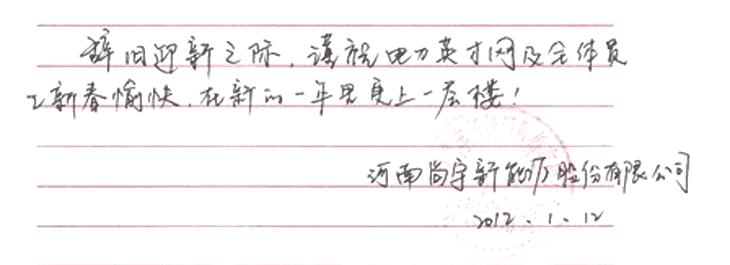 辞旧迎新之际,谨祝电力英才网及全体员
工新春愉快,在新的一年里更上一层楼!
河南尚宇新能源股份有限公司
2012.1.12